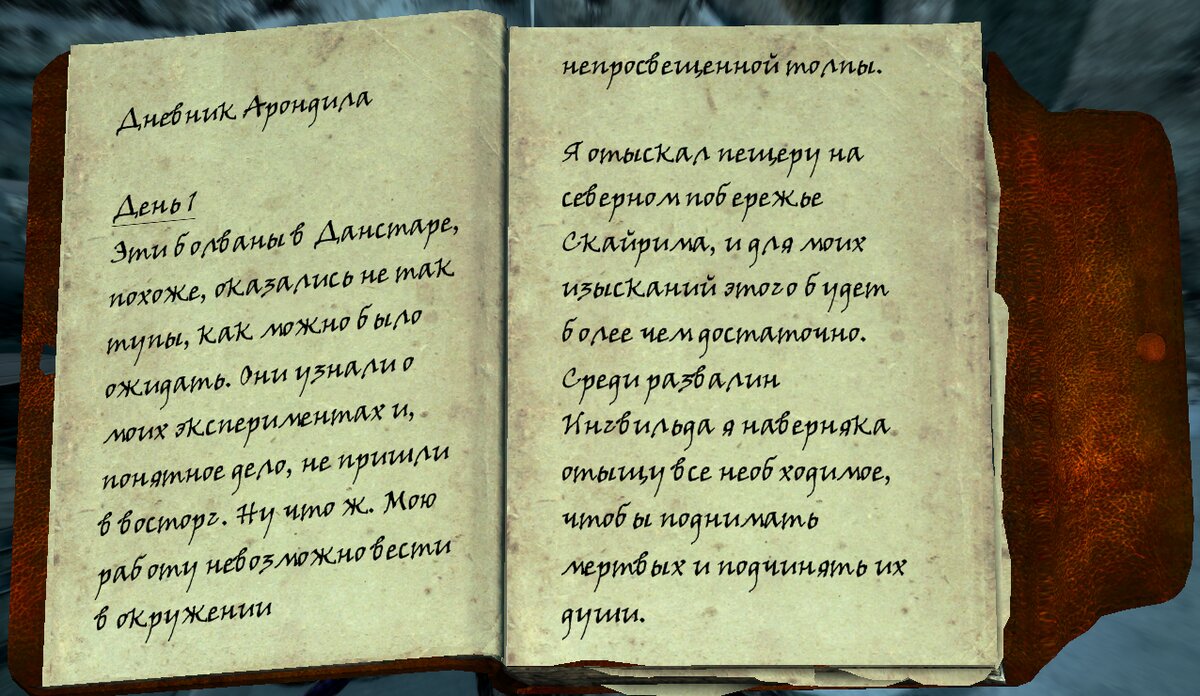 Дневник Арондила
День 1
Эти болваны в Данстаре,
похоже, оказались не так
тупы, как можно было
ожидать. Они узнали о
моих экспериментах и,
понятное дело, не пришли
в восторг. Ну что ж. Мою
работу невозможно вести
в окружении
непросвещенной толпы.
Я отыскал пещеру на
северном побережье
Скайрима, и для моих
изысканий этого будет
более чем достаточно.
Среди развалин
Ингвильда я наверняка
отыщу все необходимое,
чтобы поднимать
мертвых и подчинять их
души.